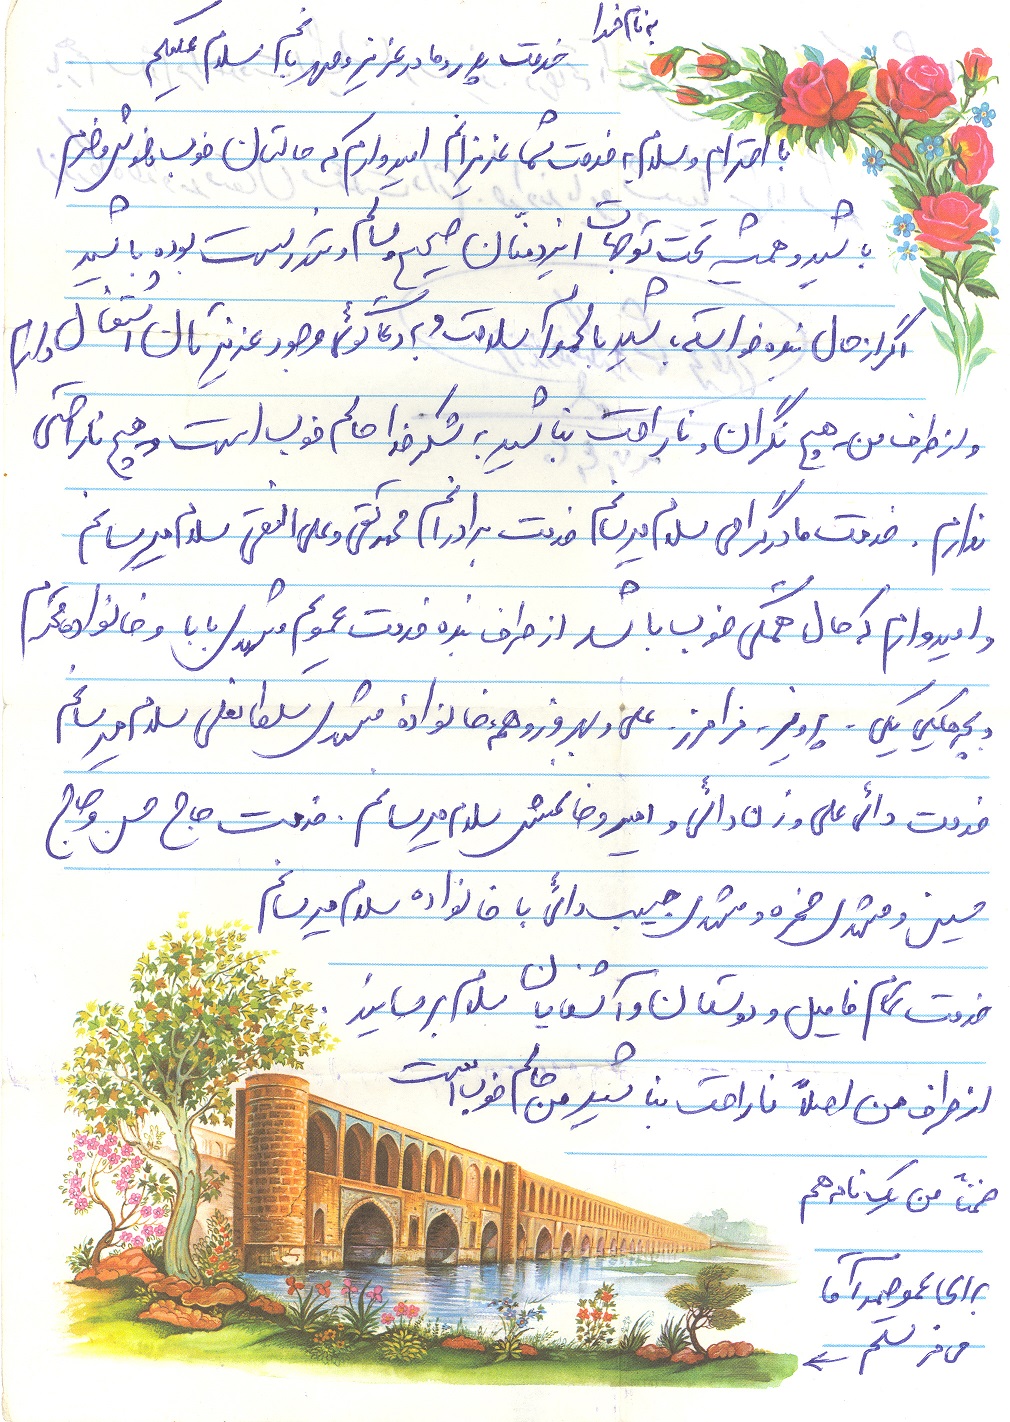 به نام خدا
خدمت پدر و مادر عزیز و مهربانم سلام علیکم
با احترام و سلام به خدمت شما عزیزانم امیدوارم که حالتان خوب و خوش و خرم
باشید و همیشه تحت توجهات ایزد منّان صحیح و سالم و تندرست بوده باشید
اگر از حال بنده خواسته باشید بالحمدالله سلامت و به دعاگوئی وجود عزیزتان اشتغال دارم
و از طرف من هیچ نگران و ناراحت نباشید به شکر خدا حالم خوب است و هیچ ناراحتی
ندارم . خدمت مادر گرامی سلام میرسانم خدمت برادرانم محمد تقی و علی النقی سلام میرسانم
و امیدوارم که حال همگی خوب باشد از طرف بنده خدمت عمویم مشهدی بابا و خانواده محترم
و بچه‌هایش یکی یکی - پرویز - فرامرز - علی و بهروز و همه خانوادهٔ مشهدی سلطانعلی سلام میرسانم
خدمت دائی علی و زن دائی و امیر و خانمش سلام میرسانم . خدمت حاج حسن و حاج
حسین و مشهدی حمزه و مشهدی حبیب دائی با خانواده سلام میرسانم
خدمت تمام فامیل و دوستان و آشنایان سلام برسانید .
از طرف من اصلاً ناراحت نباشید من حالم خوب است
ضمناً من یک نامه هم
برای عمو صمد آقا
می فرستم